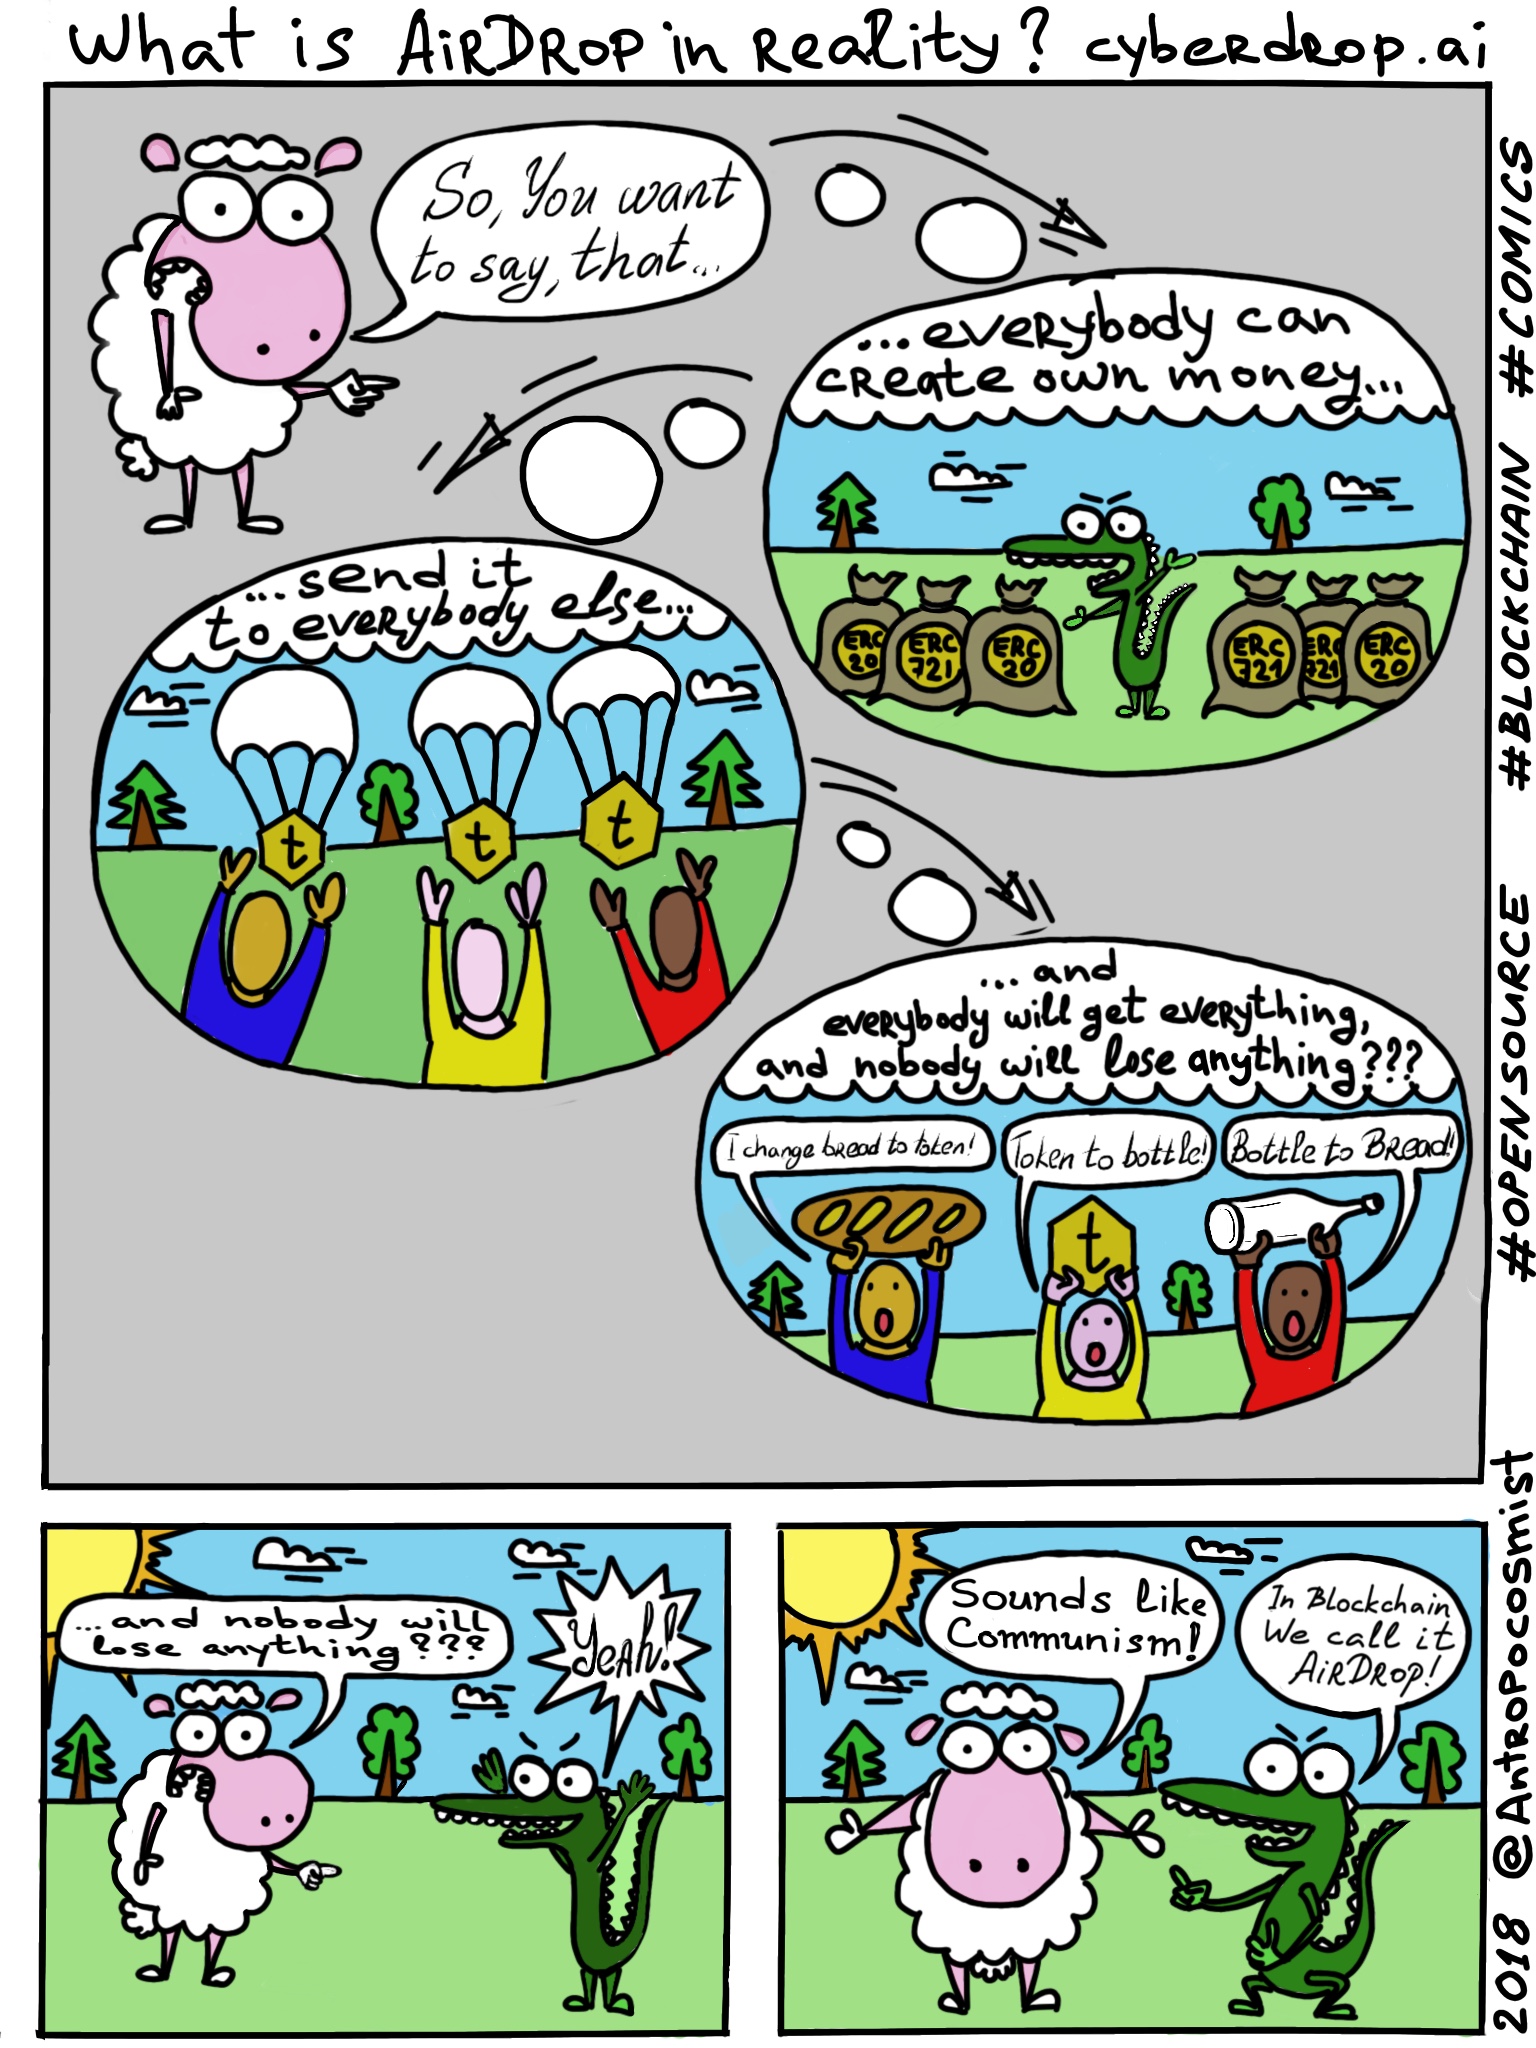 What is AiRDROP in Reality? cyberdrop.ai
So, You want
to say, that...
...everybody can
create own money...
ERC
20
ERC
721
ERC
20
ERC
721
ERC
721
ERC
20
...send it
to everybody else...
t
t
t
...and
everybody will get everything,
and nobody will lose anything???
I change bread to token!
Token to bottle!
Bottle to Bread!
t
...and nobody will
lose anything???
Yeah!
Sounds like
Communism!
In Blockchain
We call it
AiRDROP!
2018 @Antropocosmist #OPENSOURCE #BLOCKCHAIN #COMICS